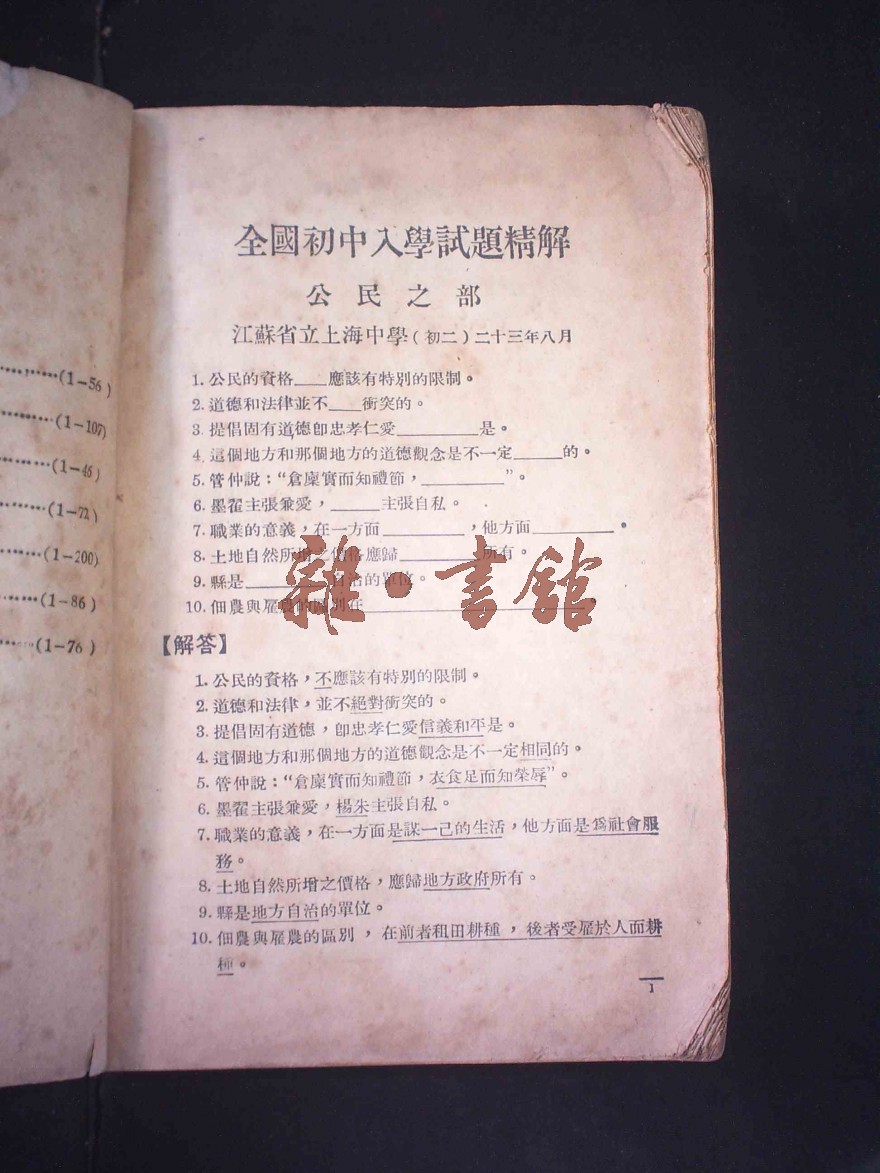 ………(1-56)
………(1-107)
………(1-46)
………(1-72)
………(1-200)
………(1-86)
………(1-76)
全國初中入學試題精解
公民之部
江蘇省立上海中學(初二)二十三年八月
1. 公民的資格____應該有特別的限制。
2. 道德和法律並不____衝突的。
3. 提倡固有道德卽忠孝仁愛__________是。
4. 這個地方和那個地方的道德觀念是不一定______的。
5. 管仲說：“倉廩實而知禮節，__________”。
6. 墨翟主張兼愛，______主張自私。
7. 職業的意義，在一方面__________，他方面__________。
8. 土地自然所增之價格應歸__________所有。
9. 縣是__________自治的單位。
10. 佃農與雇農的區別在____________________________。
雜·書館
【解答】
1. 公民的資格，不應該有特別的限制。
2. 道德和法律，並不絕對衝突的。
3. 提倡固有道德，卽忠孝仁愛信義和平是。
4. 這個地方和那個地方的道德觀念是不一定相同的。
5. 管仲說：“倉廩實而知禮節，衣食足而知榮辱”。
6. 墨翟主張兼愛，楊朱主張自私。
7. 職業的意義，在一方面是謀一己的生活，他方面是爲社會服
務。
8. 土地自然所增之價格，應歸地方政府所有。
9. 縣是地方自治的單位。
10. 佃農與雇農的區別，在前者租田耕種，後者受雇於人而耕
種。
1